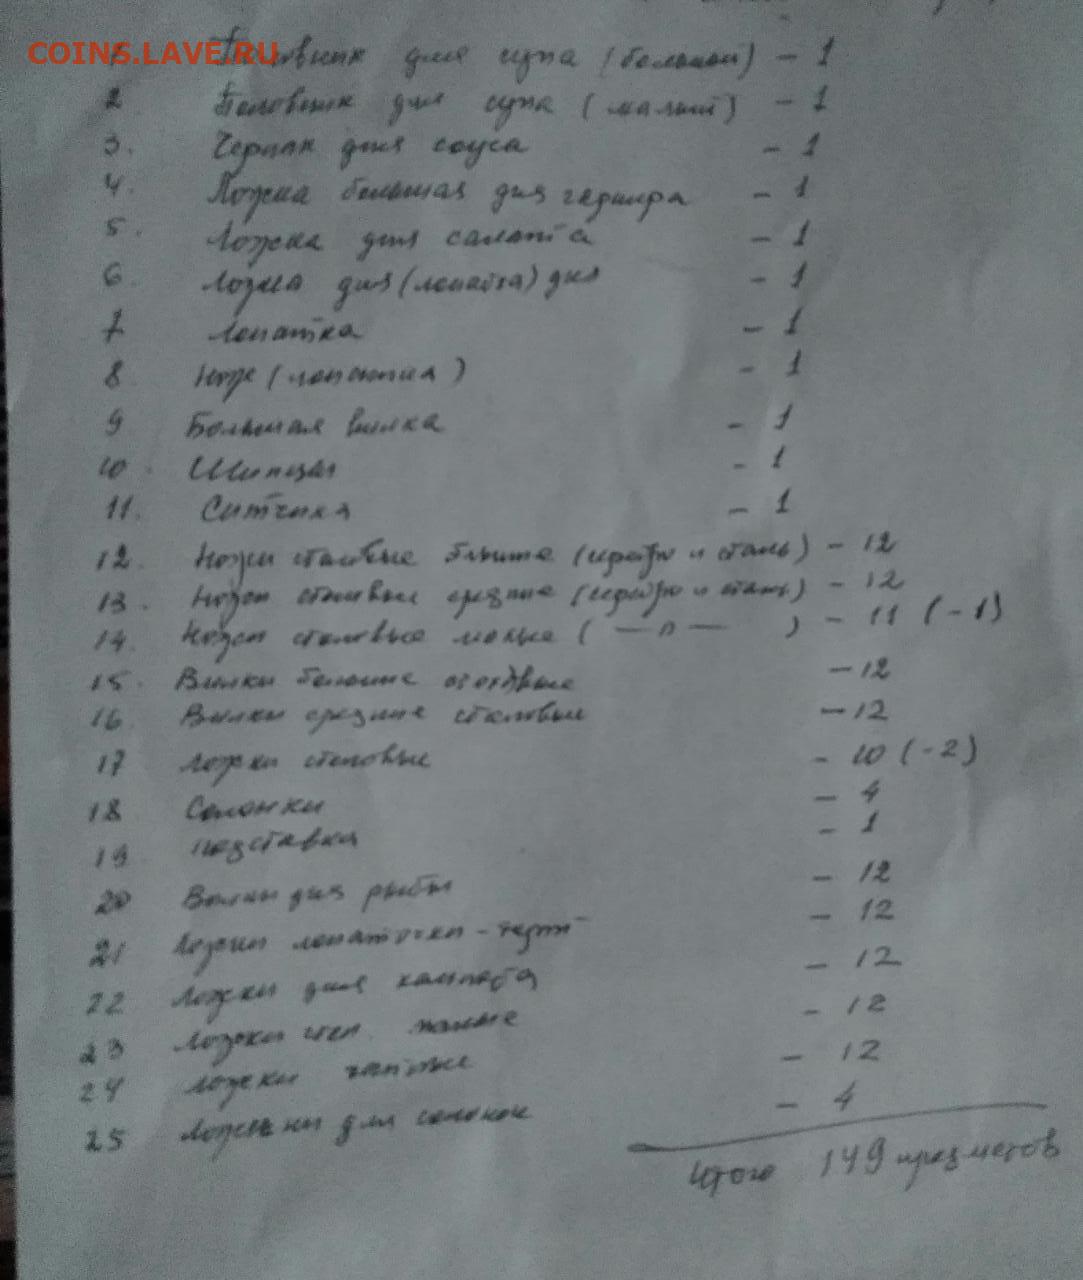 COINS.LAVE.RU
Половник для супа (большой) - 1
2 Половник для супа (малый) - 1
3. Черпак для соуса - 1
4. Ложка большая для гарнира - 1
5. Ложка для салата - 1
6. Ложка для (лопатка) для - 1
7 Лопатка - 1
8 Нож (лопатка) - 1
9 Большая вилка - 1
10. Щипцы - 1
11. Ситечка - 1
12. Ножи столовые большие (серебро и сталь) - 12
13. Ножи столовые средние (серебро и сталь) - 12
14. Ножи столовые малые ( — п — ) - 11 (-1)
15. Вилки большие - 12
16. Вилки средние столовые - 12
17 Ложки столовые - 10 (-2)
18 Солонки - 4
19 Подставка - 1
20 Вилки для рыбы - 12
21 Ложки лопаточки - - 12
22 Ложки для компота - 12
23 Ложки малые - 12
24 Ложки чайные - 12
25 Ложки для солонок - 4
Итого 149 предметов